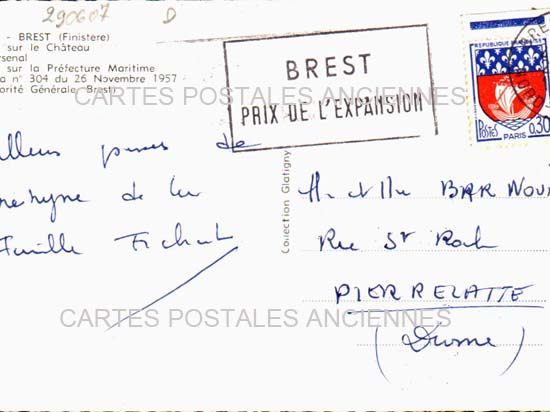 290607 D
- BREST (Finistère)
sur le Château
rsenal
sur la Préfecture Maritime
a n° 304 du 26 Novembre 1957 -
orité Générale, Brest)
BREST
PRIX DE L'EXPANSION
REPUBLIQUE FRANÇAISE
POSTES PARIS 0,30
CARTES POSTALES ANCIENNES
illeurs de
de la
Famille
Collection Glatigny
BARNOU
Rue St Roch
PIERRELATTE
(Drome)
CARTES POSTALES ANCIENNES